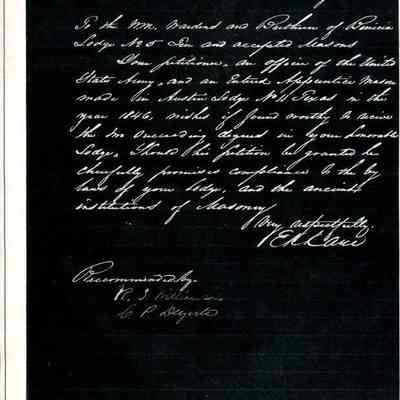 To the WM. Wardens and Brethren of Benicia
Lodge No 5 Free and accepted Masons
Your petitioner, an officer of the United
States Army, and an Entered Apprentice Mason
made in Austin Lodge No 11 Texas in the
year 1846, wishes if found worthy to receive
the two succeeding degrees in your honorable
Lodge, Should his petition be granted he
cheerfully promises compliance to the by
laws of your lodge, and the ancient
institutions of Masonry
Very respectfully.
Recommended by.